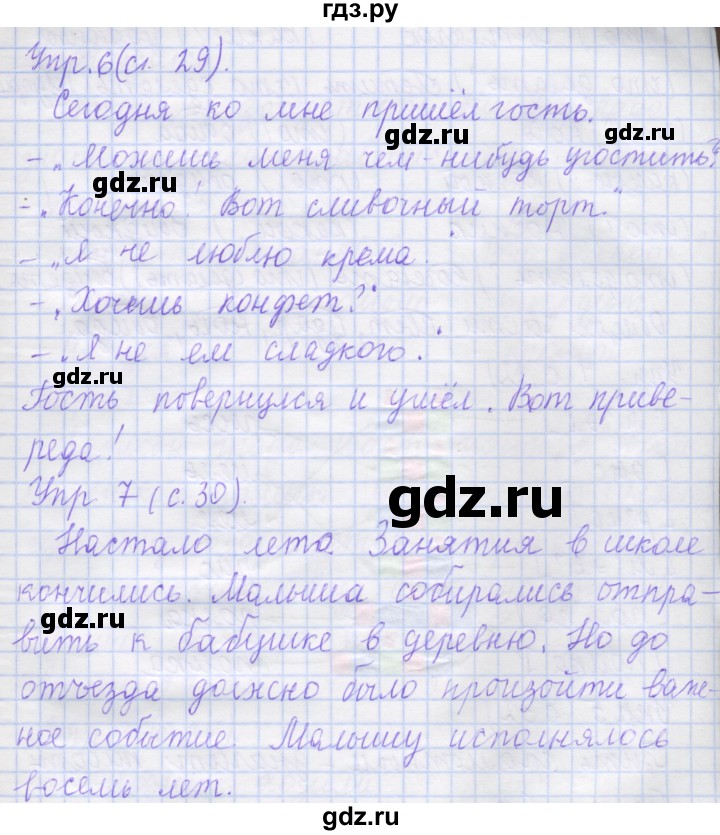 гдз.ру
Упр.6(ст. 29).
Сегодня ко мне пришёл гость.
gdz.ru gdz.ru
- „Можешь меня чем-нибудь угостить?"
gdz.ru
- „Конечно! Вот сливочный торт."
gdz.ru
- „Я не люблю крема."
- „Хочешь конфет?"
- „Я не ем сладкого."
gdz.ru
Гость повернулся и ушёл. Вот приве-
реда!
gdz.ru
Упр 7 (с. 30).
Настало лето. Занятия в школе
кончились. Малыша собирались отпра-
gdz.ru
вить к бабушке в деревню. Но до
отъезда должно было произойти важ-
ное событие. Малышу исполнялось
восемь лет.
gdz.ru gdz.ru